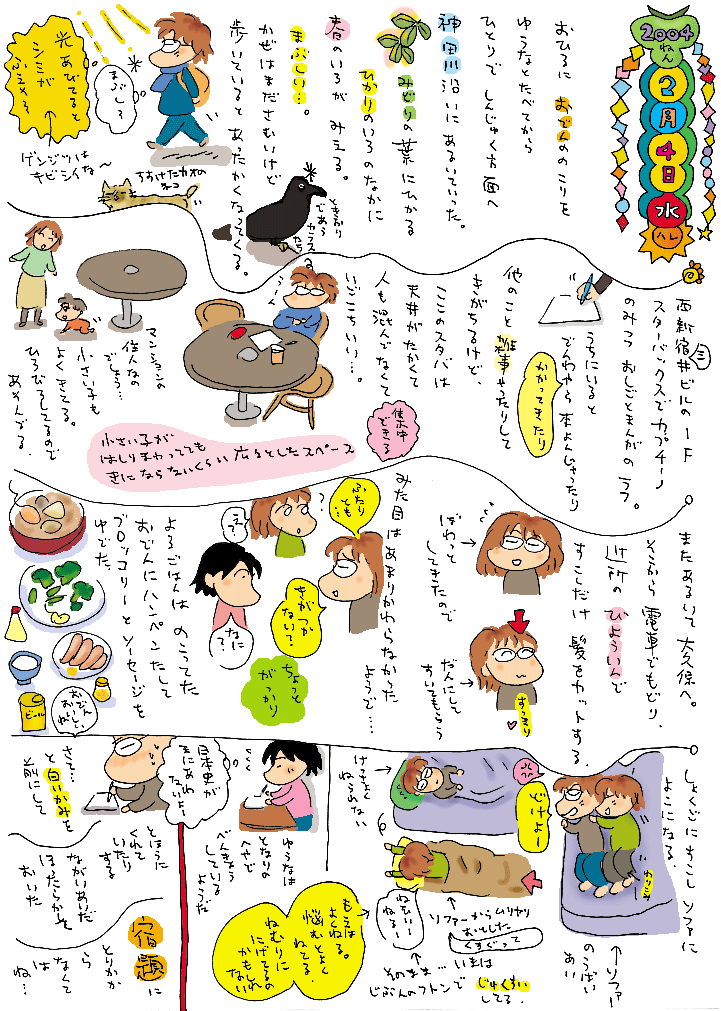 2004
ねん
2
月
4
日
水
ハレ
おひるに おでんののこりを
ゆうなとたべてから
ひとりで しんじゅく方面へ
神田川沿いに あるいていった。
みどりの葉にひかる
ひかりのいろのなかに
春のいろが みえる。
まぶしい…。
かぜはまださむいけど
歩いていると あったかくなってくる。
まぶしろ
光あびてると
シミが
ふえそう
ゲンジツは
キビシイな〜
西新宿三井ビルの1F
スターバックスでカプチーノ
のみつつ おしごとまんがのラフ。
うちにいると
でんわやら 本よんじゃったり
かかってきたり
他のこと 家事やったりして
きがちるけど、
ここのスタバは
天井がたかくて
人も混んでなくて
いごこちいい…。
うーん
集中
できる
マンションの
住人なの
でしょう…
小さい子も
よくきてる。
ひろびろしてるので
あそんでる。
小さい子が
はしりまわってても
きにならないくらい 広々としたスペース
またあるいて 大久保へ。
そこから 電車でもどり、
近所の びよういんで
すこしだけ 髪をカットする。
ぼわっと
してきたので
だんにして
すいてもらう
すっきり
みた目はあまりかわらなかった
ようで…
ふたり
とも…
え?
きがつか
ない?
なに
?
ちょっと
がっかり
よるごはんは のこってた
おでんにハンペンたして
ブロッコリーとソーセージを
ゆでた。
ビール
おでん
おいしいね
しょくごに すこし ソファに
よこになる。
ソファー
のうばい
あい
どけよー
け子よく
ねられない
ソファーからムリヤリ
おとした
くすぐって
そのまま いまは
じぶんのフトンで じゅくすい
してる。
もえは
よくねる。
悩むとよく
ねてる。
ねむりに
にげてるの
かもしれ
ない
ゆうなは
となりの
へやで
べんきょう
しているようだ
日本史が
まにあわ
ないよー
さて…
と 白いかみを
前にして
とほうに
くれて
いたり
する
ながいあいだ
ほったらかして
おいた
宿題に
とりかか
ら
なくて
は
ね…